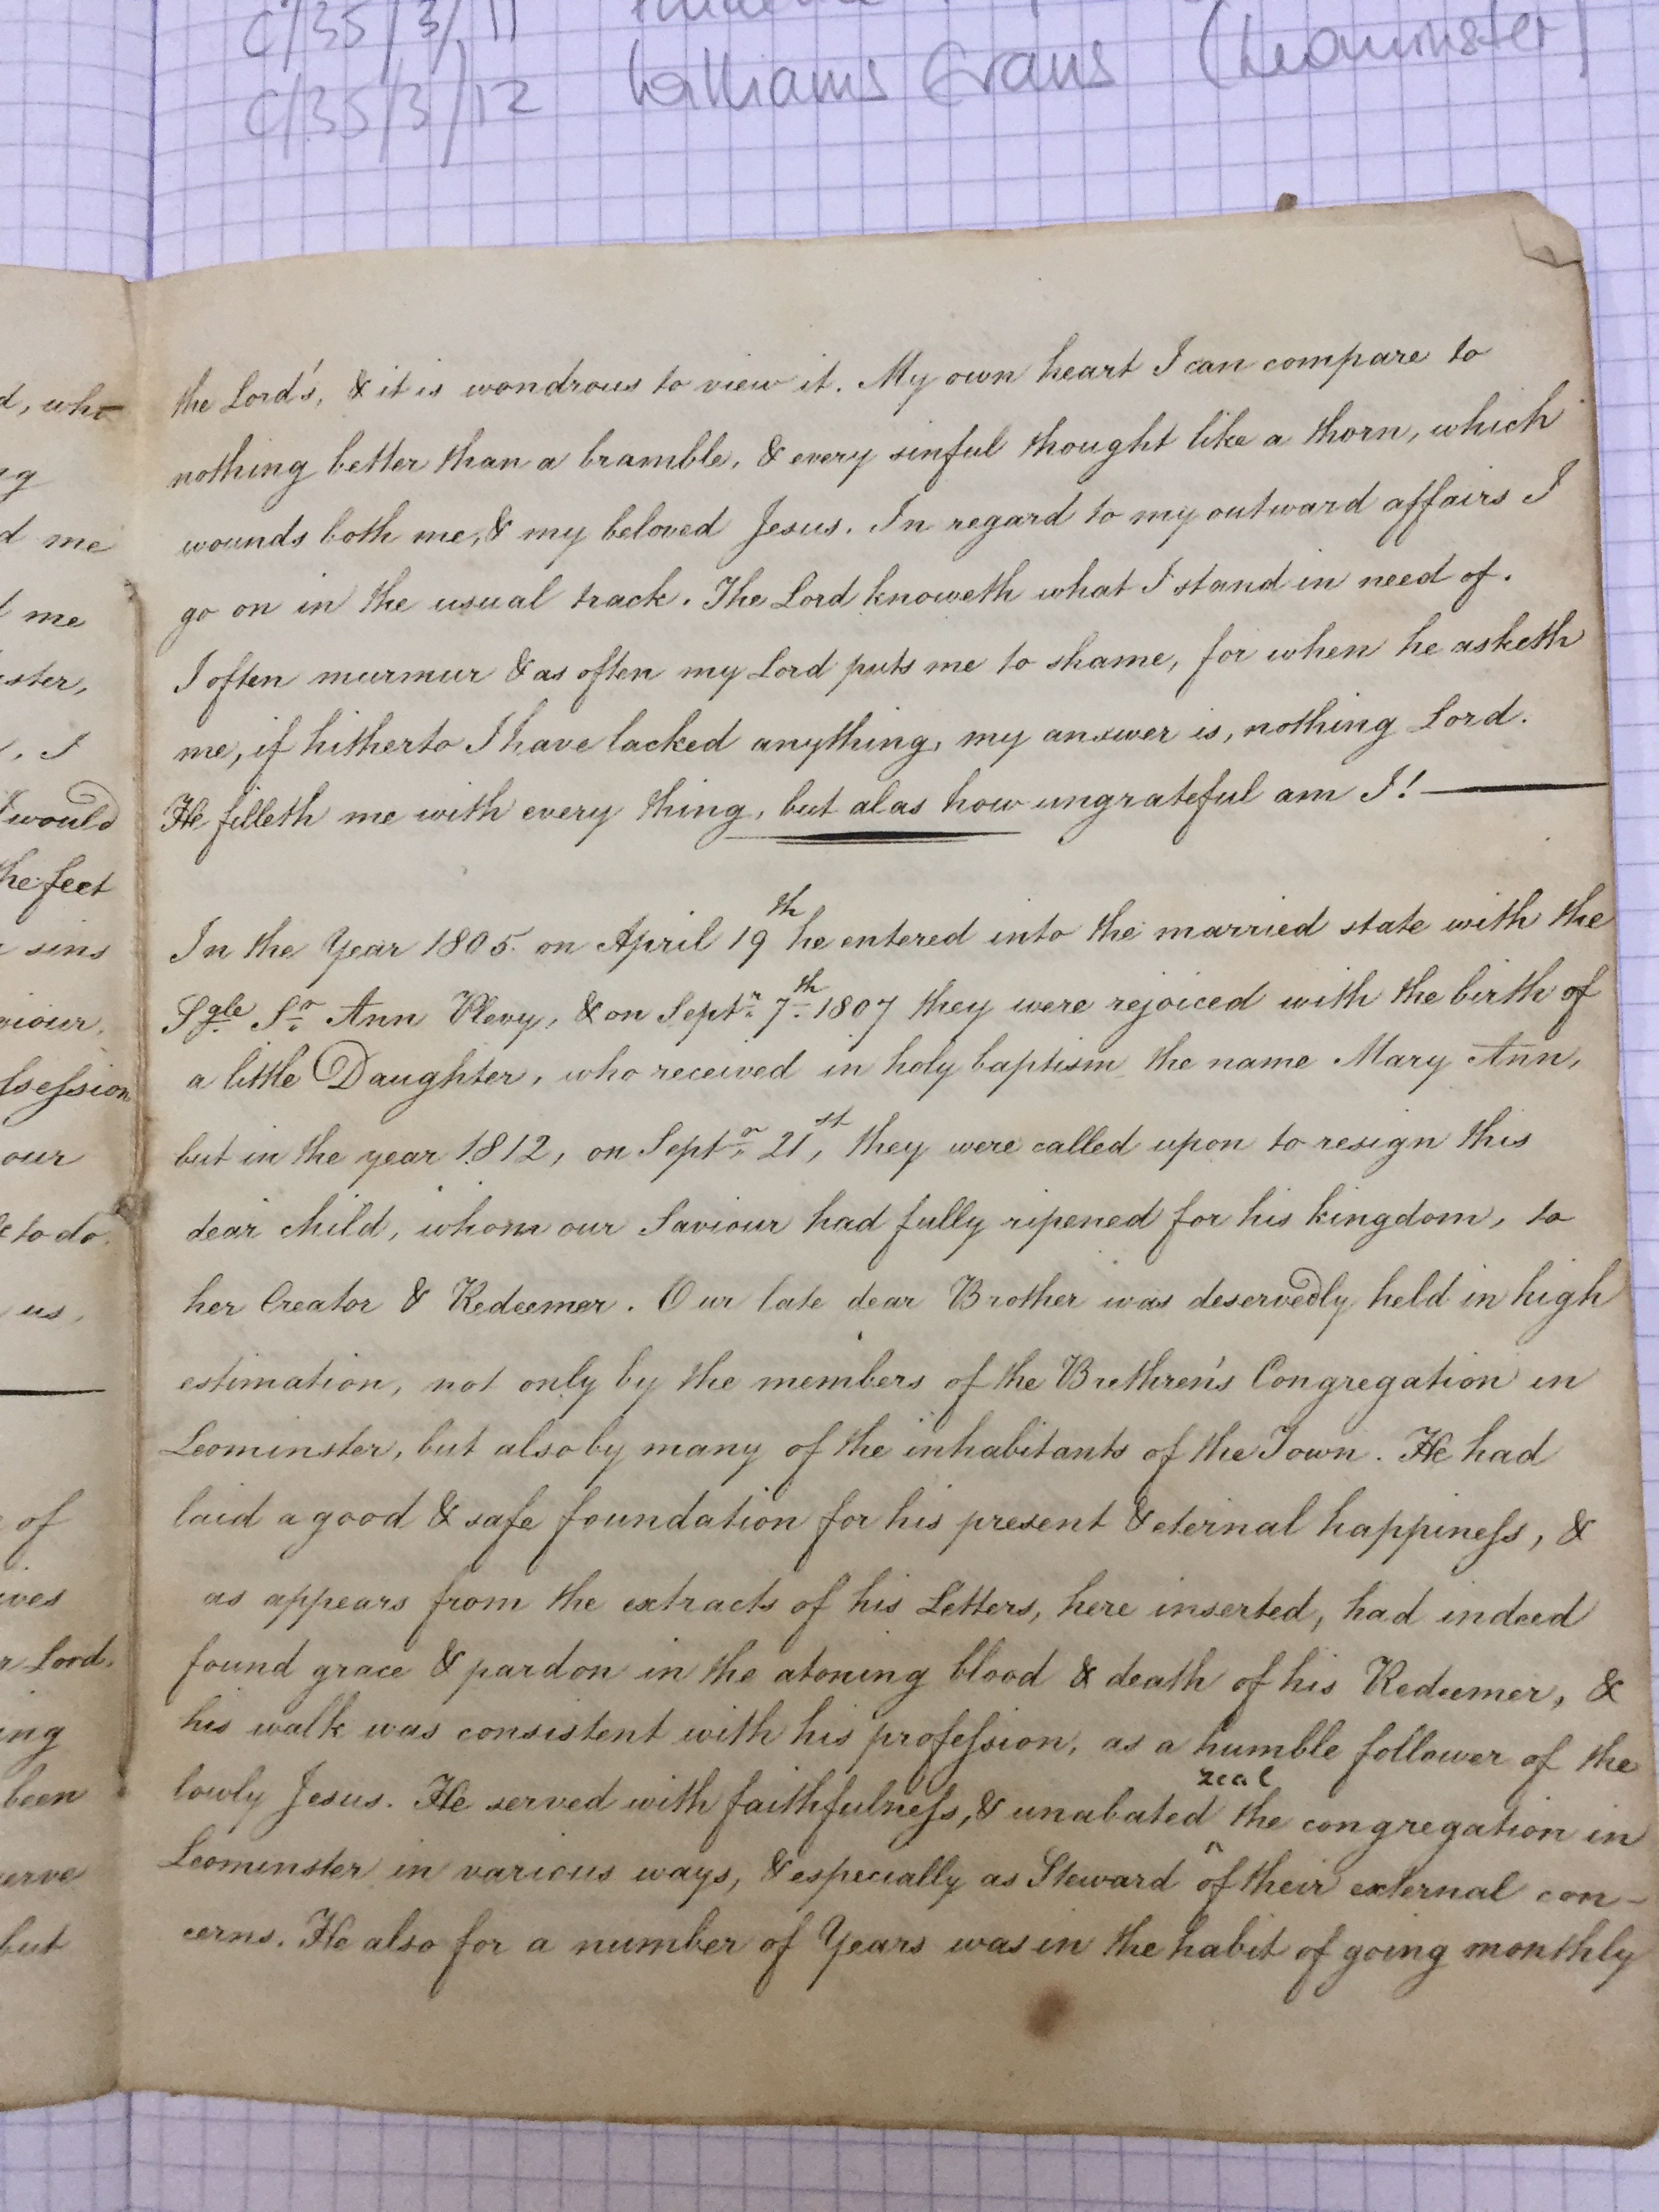 C/35/3/11
C/35/3/12 Williams Evans (Leominster)
d, who
me
me
ster,
I
would
the feet
sins
viour,
ssession
our
to do
us,
of
ves
Lord.
ing
been
serve
but
the Lord's, & it is wondrous to view it. My own heart I can compare to
nothing better than a bramble, & every sinful thought like a thorn, which
wounds both me, & my beloved Jesus. In regard to my outward affairs I
go on in the usual track. The Lord knoweth what I stand in need of.
I often murmur & as often my Lord puts me to shame, for when he asketh
me, if hitherto I have lacked anything, my answer is, nothing Lord.
He filleth me with every thing, but alas how ungrateful am I! —
In the Year 1805. on April 19th he entered into the married state with the
Sgle Sr Ann Vlevy, & on Septr 7th 1807 they were rejoiced with the birth of
a little Daughter, who received in holy baptism the name Mary Ann,
but in the year 1812, on Septr 21st, they were called upon to resign this
dear child, whom our Saviour had fully ripened for his kingdom, to
her Creator & Redeemer. Our late dear Brother was deservedly held in high
estimation, not only by the members of the Brethren's Congregation in
Leominster, but also by many of the inhabitants of the Town. He had
laid a good & safe foundation for his present & eternal happiness, &
as appears from the extracts of his Letters, here inserted, had indeed
found grace & pardon in the atoning blood & death of his Redeemer, &
his walk was consistent with his profession, as a humble follower of the
lowly Jesus. He served with faithfulness, & unabated zeal the congregation in
Leominster in various ways, & especially as Steward of their external con-
cerns. He also for a number of Years was in the habit of going monthly